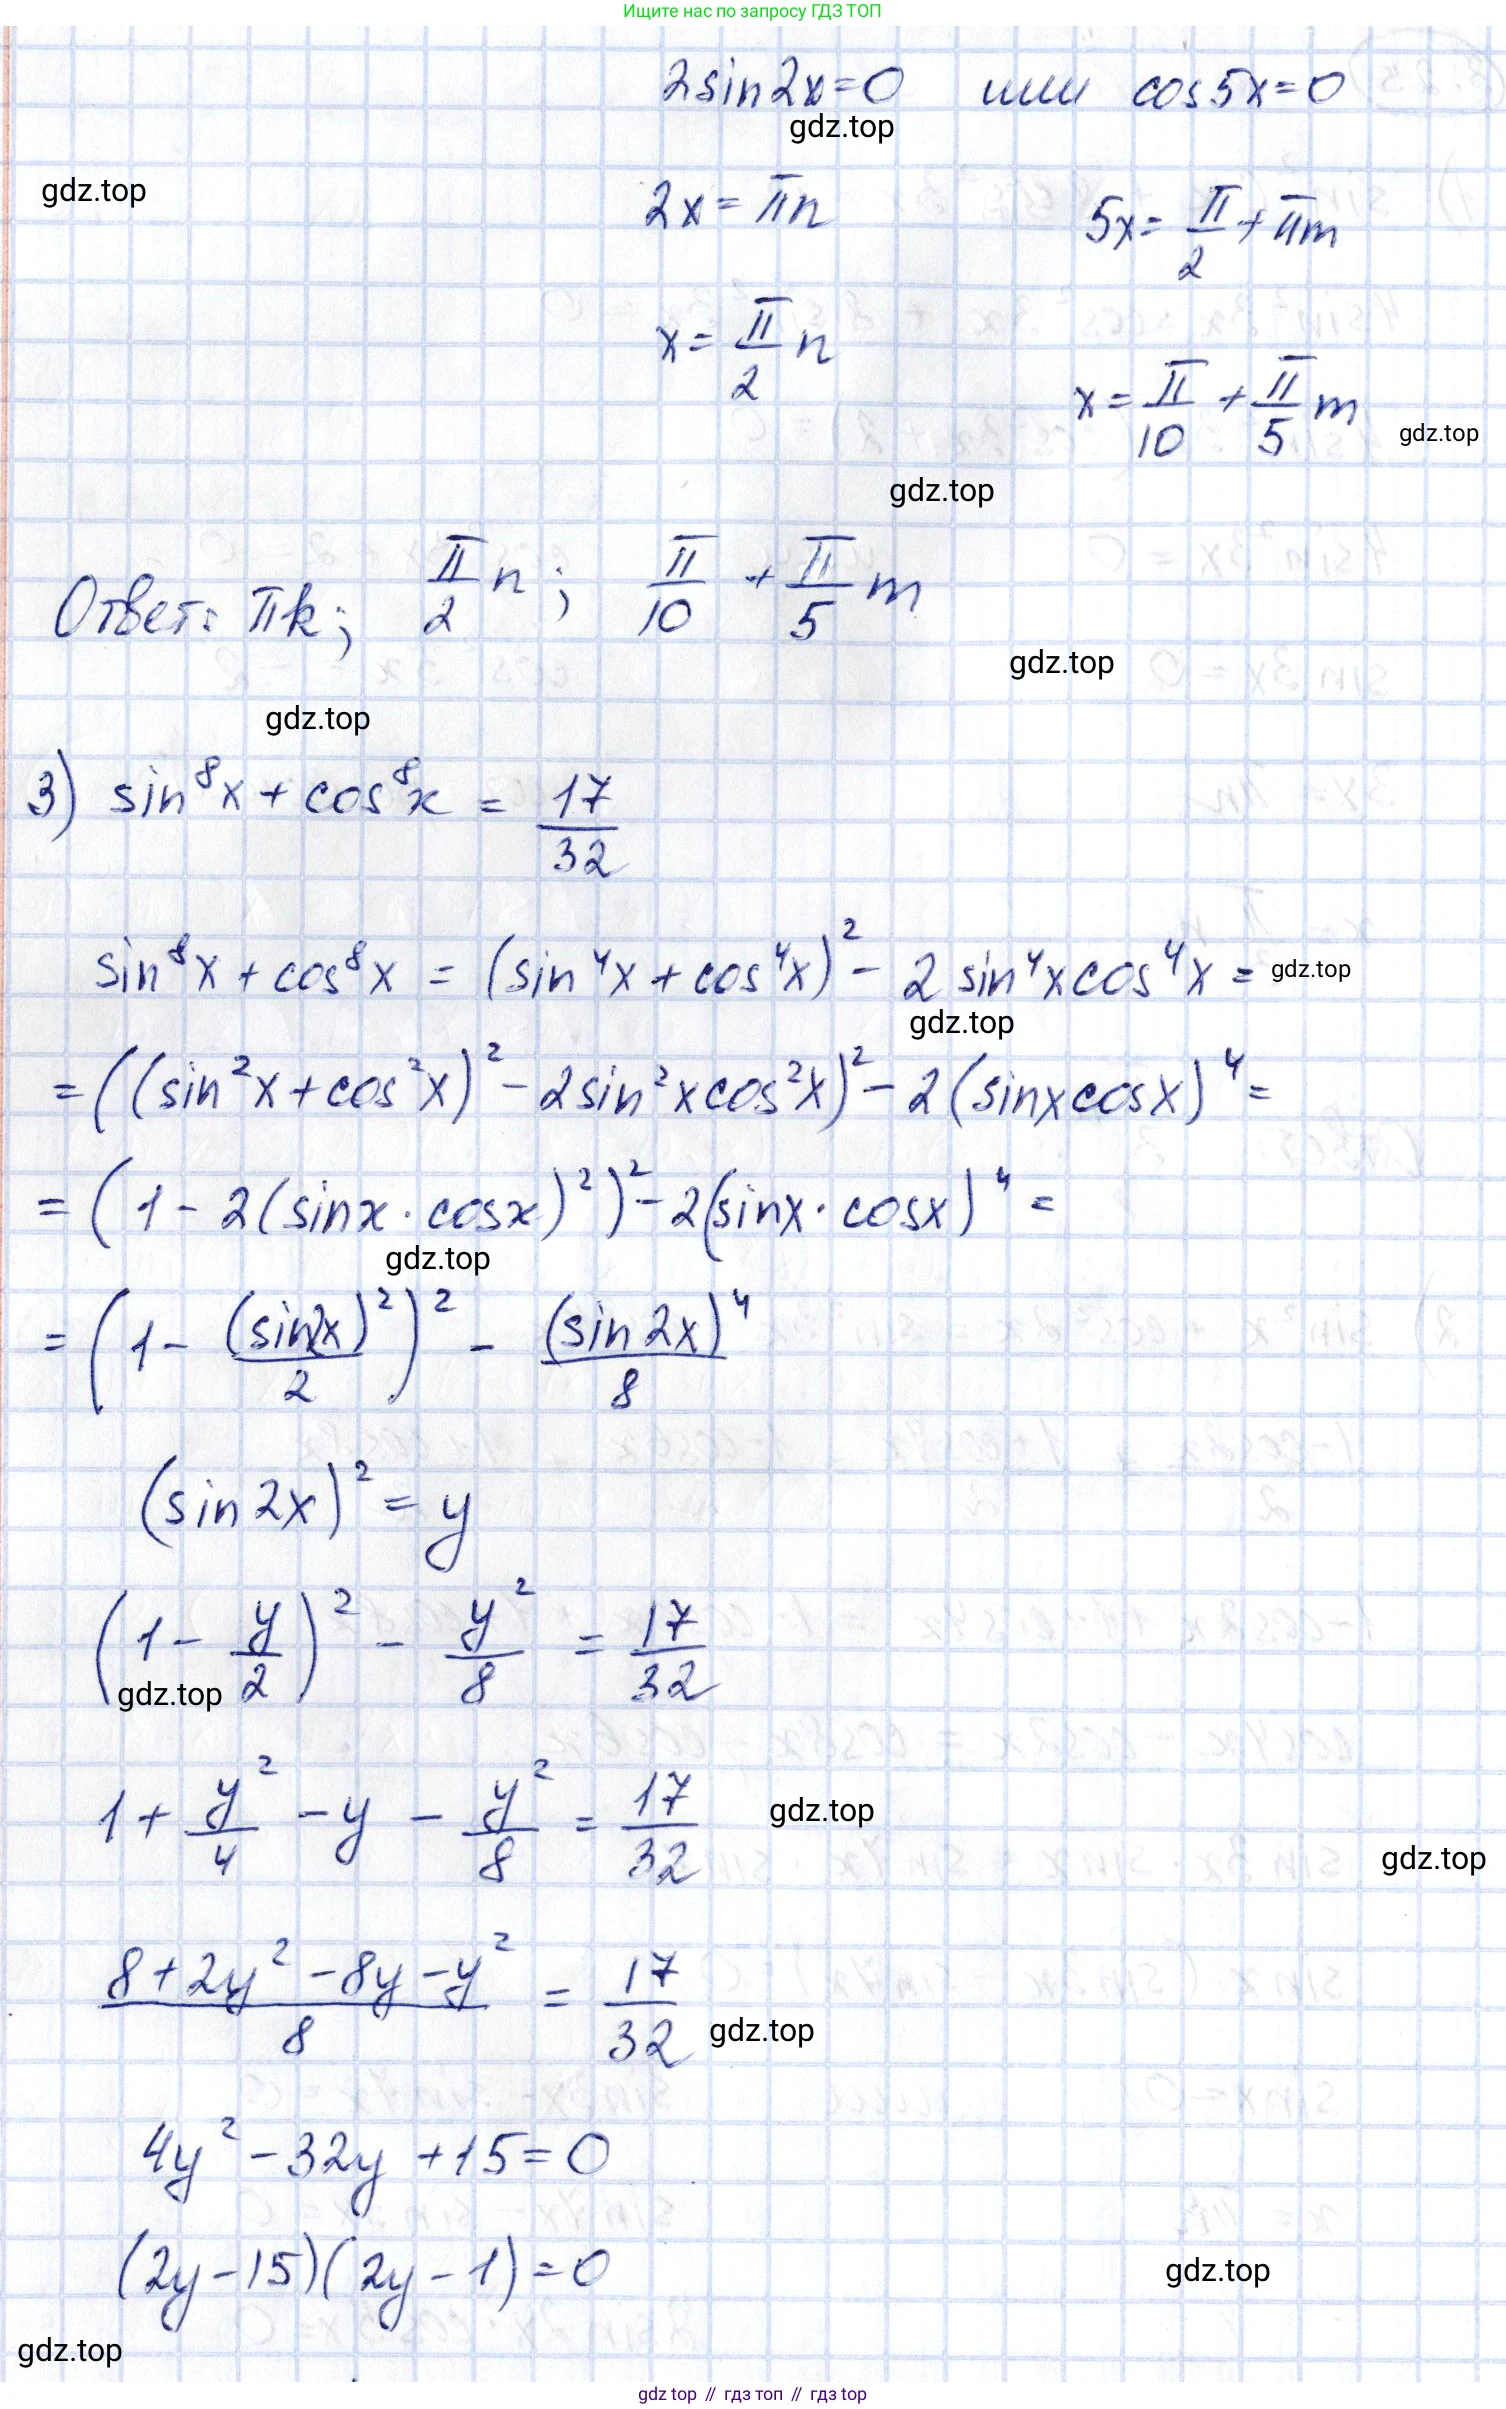 Ищите нас по запросу ГДЗ ТОП
2sin2x=0 или cos5x=0
gdz.top
gdz.top
2x=πn 5x=π/2+πm
x=π/2 n x=π/10+π/5 m
gdz.top
gdz.top
Ответ: πk; π/2 n; π/10+π/5 m
gdz.top
gdz.top
3) sin⁸x+cos⁸x=17/32
sin⁸x+cos⁸x=(sin⁴x+cos⁴x)²-2sin⁴xcos⁴x=
gdz.top
gdz.top
=((sin²x+cos²x)²-2sin²xcos²x)²-2(sinxcosx)⁴=
=(1-2(sinx·cosx)²)²-2(sinx·cosx)⁴=
gdz.top
=(1-(sin2x)²/2)²-(sin2x)⁴/8
(sin2x)²=y
(1-y/2)²-y²/8=17/32
gdz.top
1+y²/4-y-y²/8=17/32
gdz.top
gdz.top
(8+2y²-8y-y²)/8=17/32
gdz.top
4y²-32y+15=0
(2y-15)(2y-1)=0
gdz.top
gdz.top
gdz top // гдз топ // гдз top